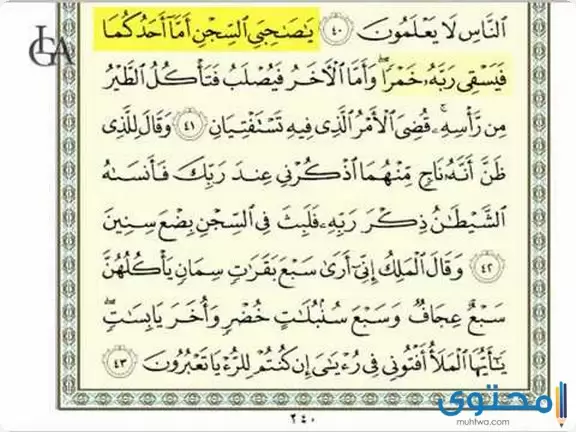 ٱلنَّاسِ لَا يَعْلَمُونَ ٤٠ يَٰصَٰحِبَىِ ٱلسِّجْنِ أَمَّآ أَحَدُكُمَا
فَيَسْقِى رَبَّهُۥ خَمْرًا ۖ وَأَمَّا ٱلْءَاخَرُ فَيُصْلَبُ فَتَأْكُلُ ٱلطَّيْرُ
مِن رَّأْسِهِۦ ۚ قُضِىَ ٱلْأَمْرُ ٱلَّذِى فِيهِ تَسْتَفْتِيَانِ ٤١ وَقَالَ لِلَّذِى
ظَنَّ أَنَّهُۥ نَاجٍ مِّنْهُمَا ٱذْكُرْنِى عِندَ رَبِّكَ فَأَنسَىٰهُ
ٱلشَّيْطَٰنُ ذِكْرَ رَبِّهِۦ فَلَبِثَ فِى ٱلسِّجْنِ بِضْعَ سِنِينَ
٤٢ وَقَالَ ٱلْمَلِكُ إِنِّىٓ أَرَىٰ سَبْعَ بَقَرَٰتٍ سِمَانٍ يَأْكُلُهُنَّ
سَبْعٌ عِجَافٌ وَسَبْعَ سُنۢبُلَٰتٍ خُضْرٍ وَأُخَرَ يَابِسَٰتٍ ۖ
يَٰٓأَيُّهَا ٱلْمَلَأُ أَفْتُونِى فِى رُءْيَٰىَ إِن كُنتُمْ لِلرُّءْيَا تَعْبُرُونَ ٤٣
٢٤٠
محتوى
muhtwa.com